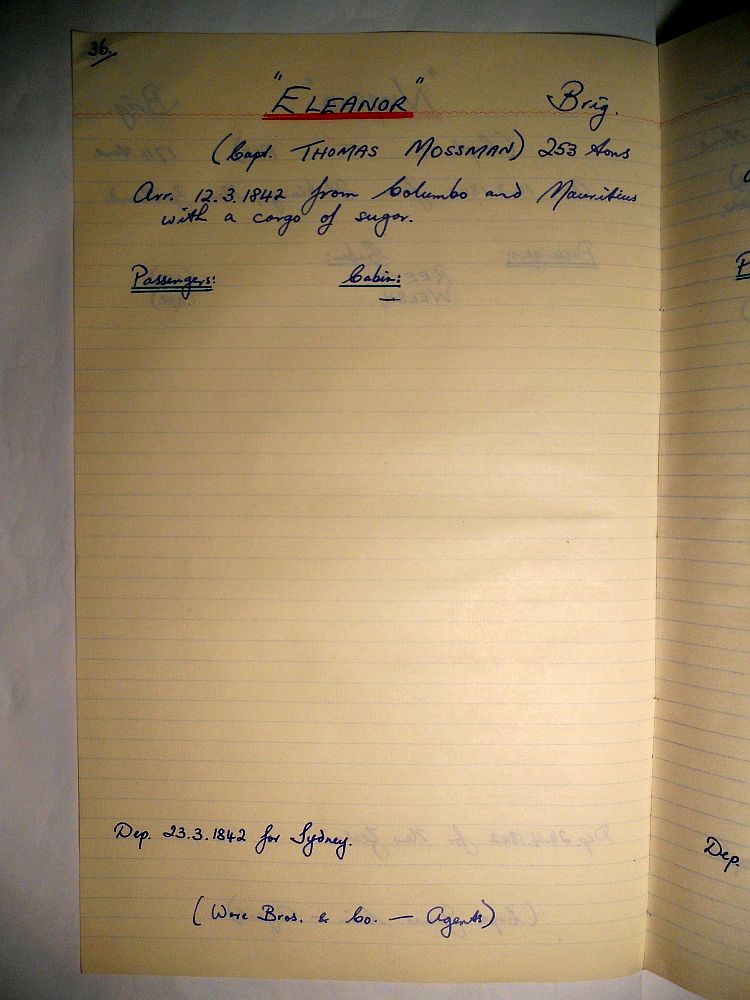 36.
"ELEANOR" Brig.
(Capt. THOMAS MOSSMAN) 253 tons
Arr. 12.3.1842 from Columbo and Mauritius
with a cargo of sugar.
Passengers: Cabin:
—
Dep. 23.3.1842 for Sydney.
Dep.
(Were Bros. & Co. — Agents)